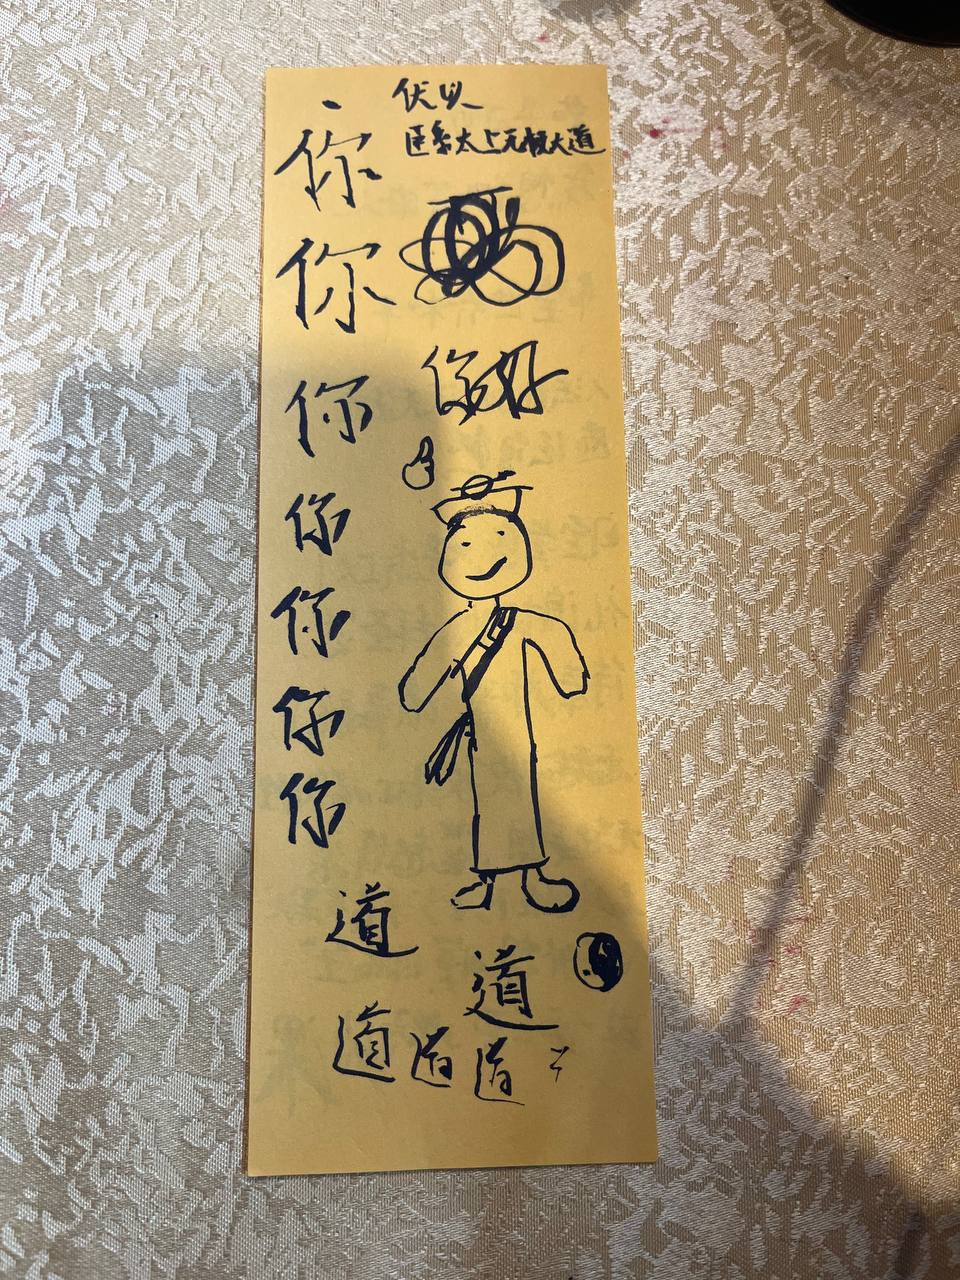 伏以
臣系太上无极大道
你
你
你
你
你
你
你
你好
道
道
道
道
道